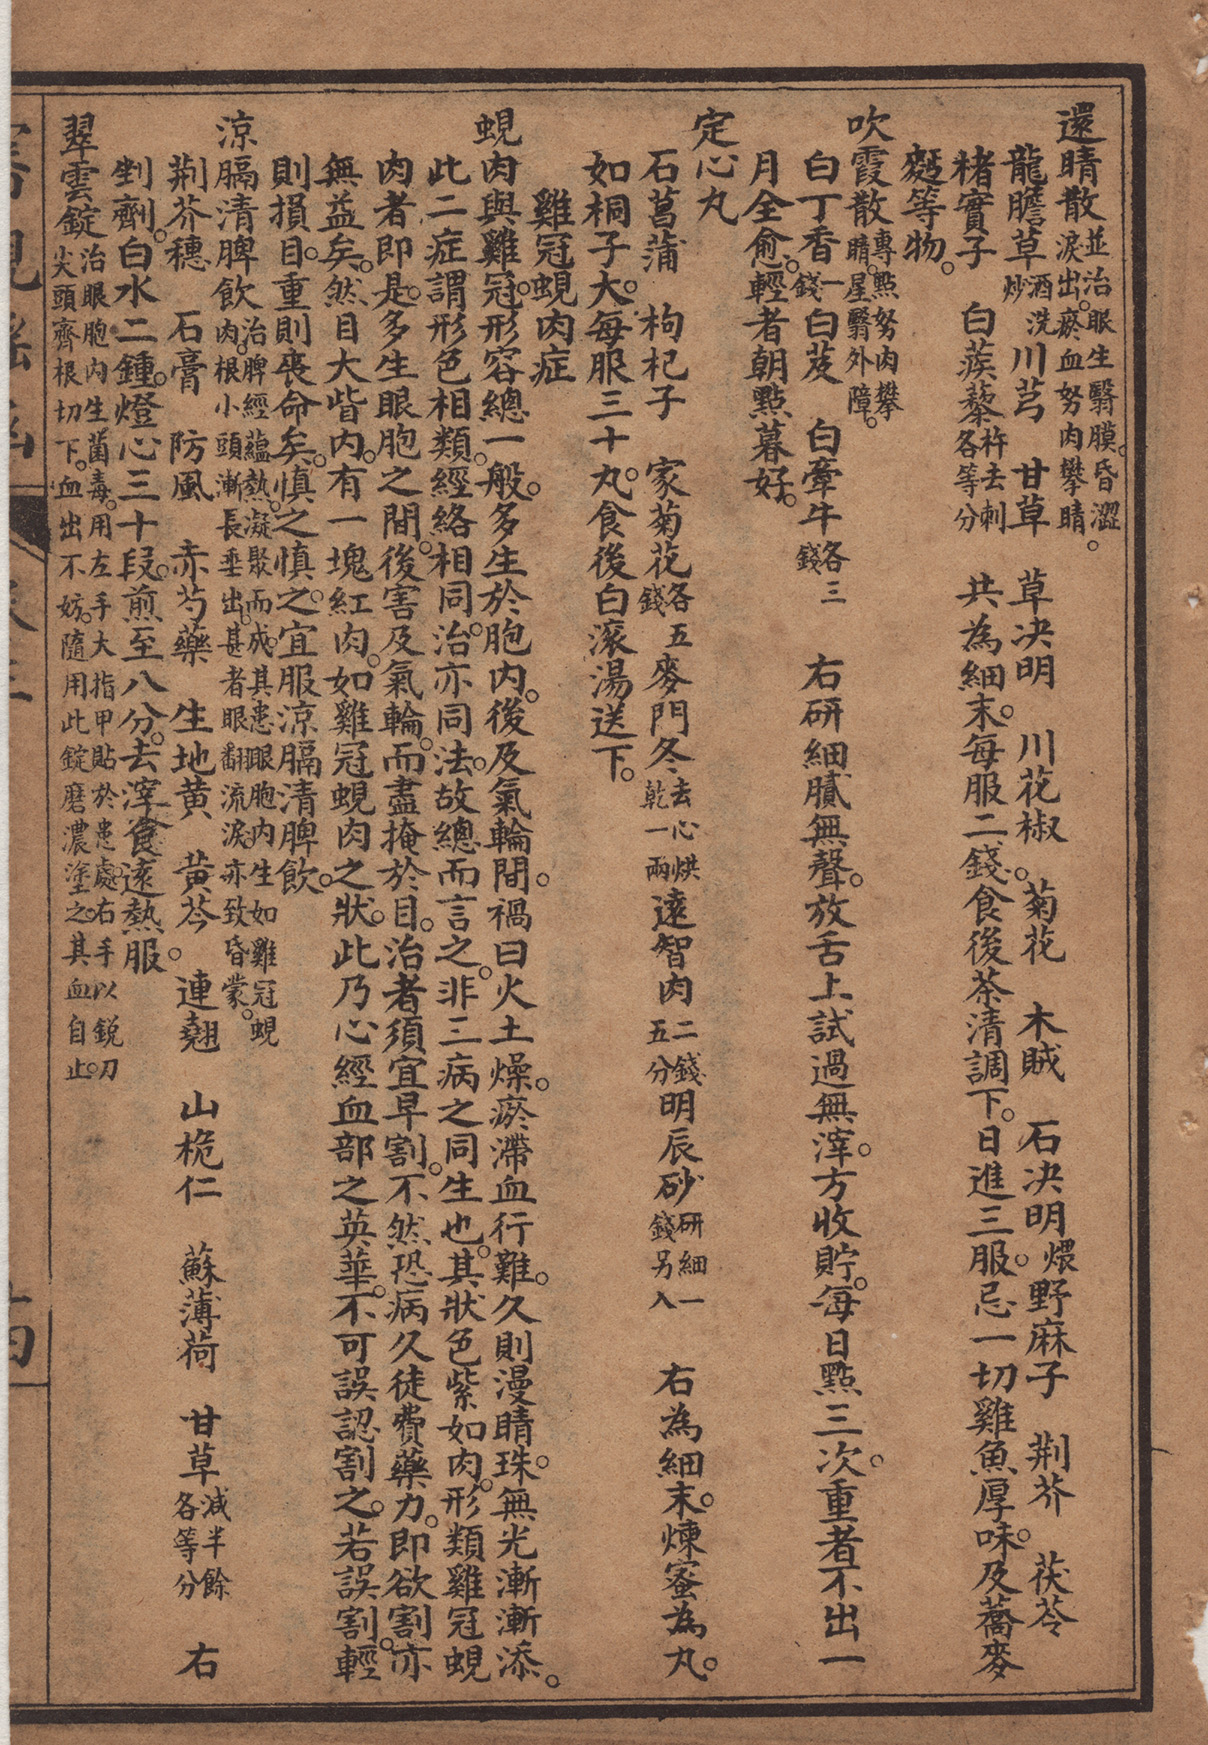 還睛散並治眼生翳膜。昏澀淚出。瘀血努肉攀睛。
龍膽草酒洗炒　川芎　甘草　草决明　川花椒　菊花　木賊　石决明煨　野麻子　荆芥　茯苓
楮實子　白蒺藜杵去刺各等分　共為細末。每服二錢。食後茶清調下。日進三服。忌一切雞魚厚味。及蕎麥
麪等物。
吹霞散專點努肉攀睛。星翳外障。
白丁香一錢　白芨　白牽牛各三錢　右研細膩無聲。放舌上試過無滓。方收貯。每日點三次。重者不出一
月全愈。輕者朝點暮好。
定心丸
石菖蒲　枸杞子　家菊花各五錢　麥門冬去心烘乾一兩　遠智肉二錢五分　明辰砂研細一錢另入　右為細末。煉蜜為丸。
如桐子大。每服三十丸。食後白滾湯送下。
雞冠蜆肉症
蜆肉與雞冠。形容總一般。多生於胞內。後及氣輪間。禍曰火土燥。瘀滯血行難。久則漫睛珠。無光漸漸添。
此二症謂形色相類。經絡相同。治亦同法。故總而言之。非二病之同生也。其狀色紫如肉。形類雞冠蜆
肉者即是。多生眼胞之間。後害及氣輪。而盡掩於目。治者須宜早割。不然恐病久徒費藥力。即欲割。亦
無益矣。然目大眥內。有一塊紅肉。如雞冠蜆肉之狀。此乃心經血部之英華。不可誤認割之。若誤割。輕
則損目。重則喪命矣。慎之慎之。宜服涼膈清脾飲。
涼膈清脾飲治脾經蘊熱。凝聚而成。其患眼胞內生如雞冠蜆肉。根小頭漸長垂出。甚者眼翻流淚。亦致昏蒙。
荆芥穗　石膏　防風　赤芍藥　生地黄　黄芩。　連翹　山梔仁　蘇薄荷　甘草減半餘各等分　右
剉劑。白水二鍾。燈心三十段。煎至八分。去滓。食遠熱服。
翠雲錠治眼胞內生菌毒。用左手大指甲貼於患處。右手以鋭刀尖頭齊根切下。血出不妨。隨用此錠磨濃塗之。其血自止。